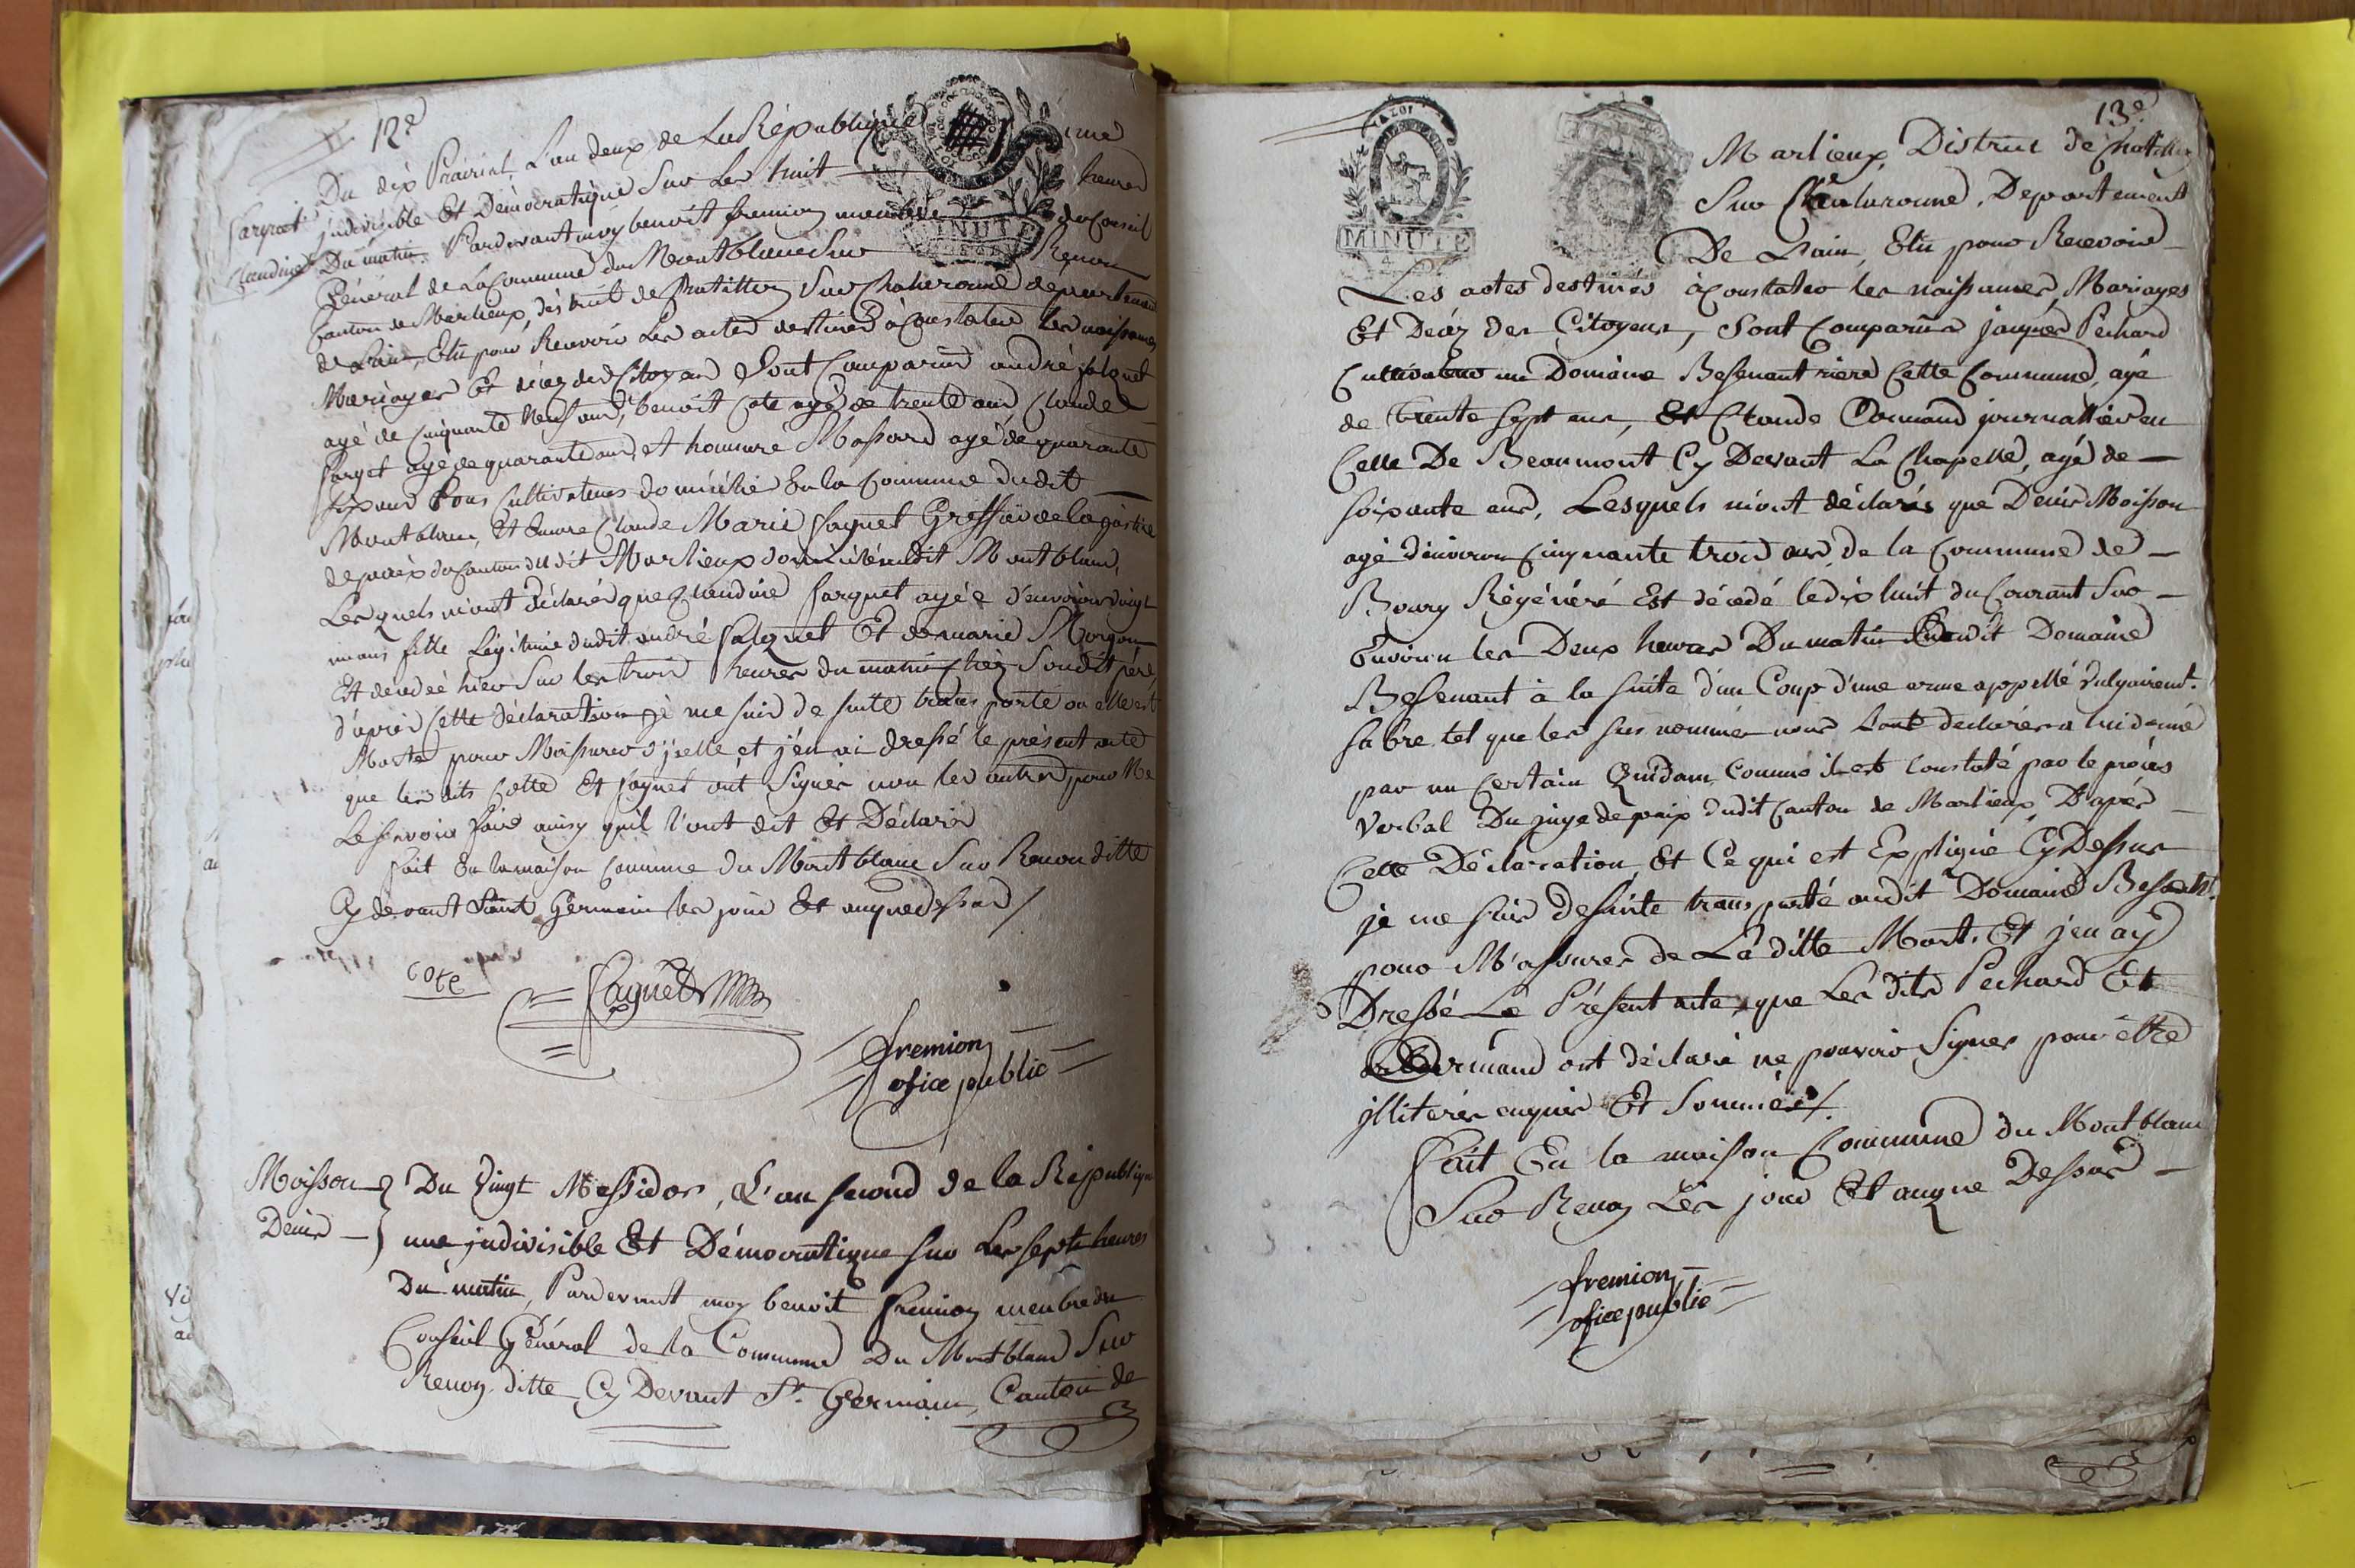 12e
Du dix Prairial, L'an deux de La République une
farguet indivisible Et Démocratique Sur Les huit heures
Claudine Du matin. Pardevant moy benoit fremion membre du Conseil
Général de La Commune du Montblanc Sur Renon
Canton de Marlieux, district de Chatillon Sur Chalaronne departement
de L'ain, Elu pour Recevoir Les actes destinés à Constater les naissances
Mariages Et décez des Citoyens Sont Comparus andré
agé de Cinquante Neuf ans, benoit Cote agé de trente ans, Claude
farget agé de quarante ans, et honnoré Massard agé de quarante
six ans tous Cultivateurs domicilié En la Commune dudit
Montblanc, Et Encore Claude Marie faguet Greffier de la justice
de paix du Canton dudit Marlieux domicilié audit Montblanc,
Lesquels m'ont déclarés que Claudine farguet agée d'environ vingt
un ans fille Légitime dudit andré Et de marie Morgon
Est décédée hier Sur les trois heures du matin chez Son dit père
d'après Cette déclaration je me suis de suite transporté ou elle est
Morte pour M'assurer d'icelle et j'en ai dressé le présent acte
que les dits Cotte Et faguet ont Signés non les autres pour Ne
Le Savoir faire ainsy qu'il l'ont dit Et Déclaré
fait En la maison Commune du Montblanc Sur Renon ditte
Cy devant Saint Germain les jour Et anque dessus /
cote
faguet
fremion
ofice public
Moisson Du Vingt Messidor, L'an second de la République
Denis une indivisible Et Démocratique sur Les sept heures
Du matin, Pardevant moy benoit fremion membre du
Conseil Général de la Commune Du Montblanc Sur
Renon ditte Cy Devant St. Germain, Canton de
13e
MINUTE
Marlieux, District de Chatillon
Sur Chalaronne, Departement
De L'ain, Elu pour Recevoir
Les actes destinés à Constater les naissances, Mariages
Et Décéz des Citoyens, Sont Comparus jaques Pechard
Cultivateur au Domaine Besenant riere Cette Commune, agé
de trente sept ans, Et Claude Dormand journallier en
Celle De Beaumont Cy Devant La Chapelle, agé de
soixante ans, Lesquels m'ont déclarés que Denis Moisson
agé d'environ Cinquante trois ans, de la Commune de
Bourg Régénéré Est décédé le dix huit du Courant Sur
Environ les Deux heures Du matin Audit Domaine
Besenant à la suite d'un Coup d'une arme appellé Vulgairemt.
sabre, tel que les sus nommés nous L'ont declarés a lui donné
par un certain Quidam, Comme il est Constaté par le procés
Verbal Du juge de paix dudit Canton de Marlieux, D'aprés
Cette Déclaration, Et Ce qui est Expliqué Cy Dessus
je me suis de suite transporté audit Domaine Besent.
pour M'assurer de La ditte Mort. Et j'en ay
Dressé Le Présent acte, que Les dits Pechard Et
Dormand ont déclaré ne pouvoir Signer pour être
illiterés enquis Et Sommés /.
fait En la maison Commune du Montblanc
Sur Renon Les jour Et anque Dessus
fremion
ofice public